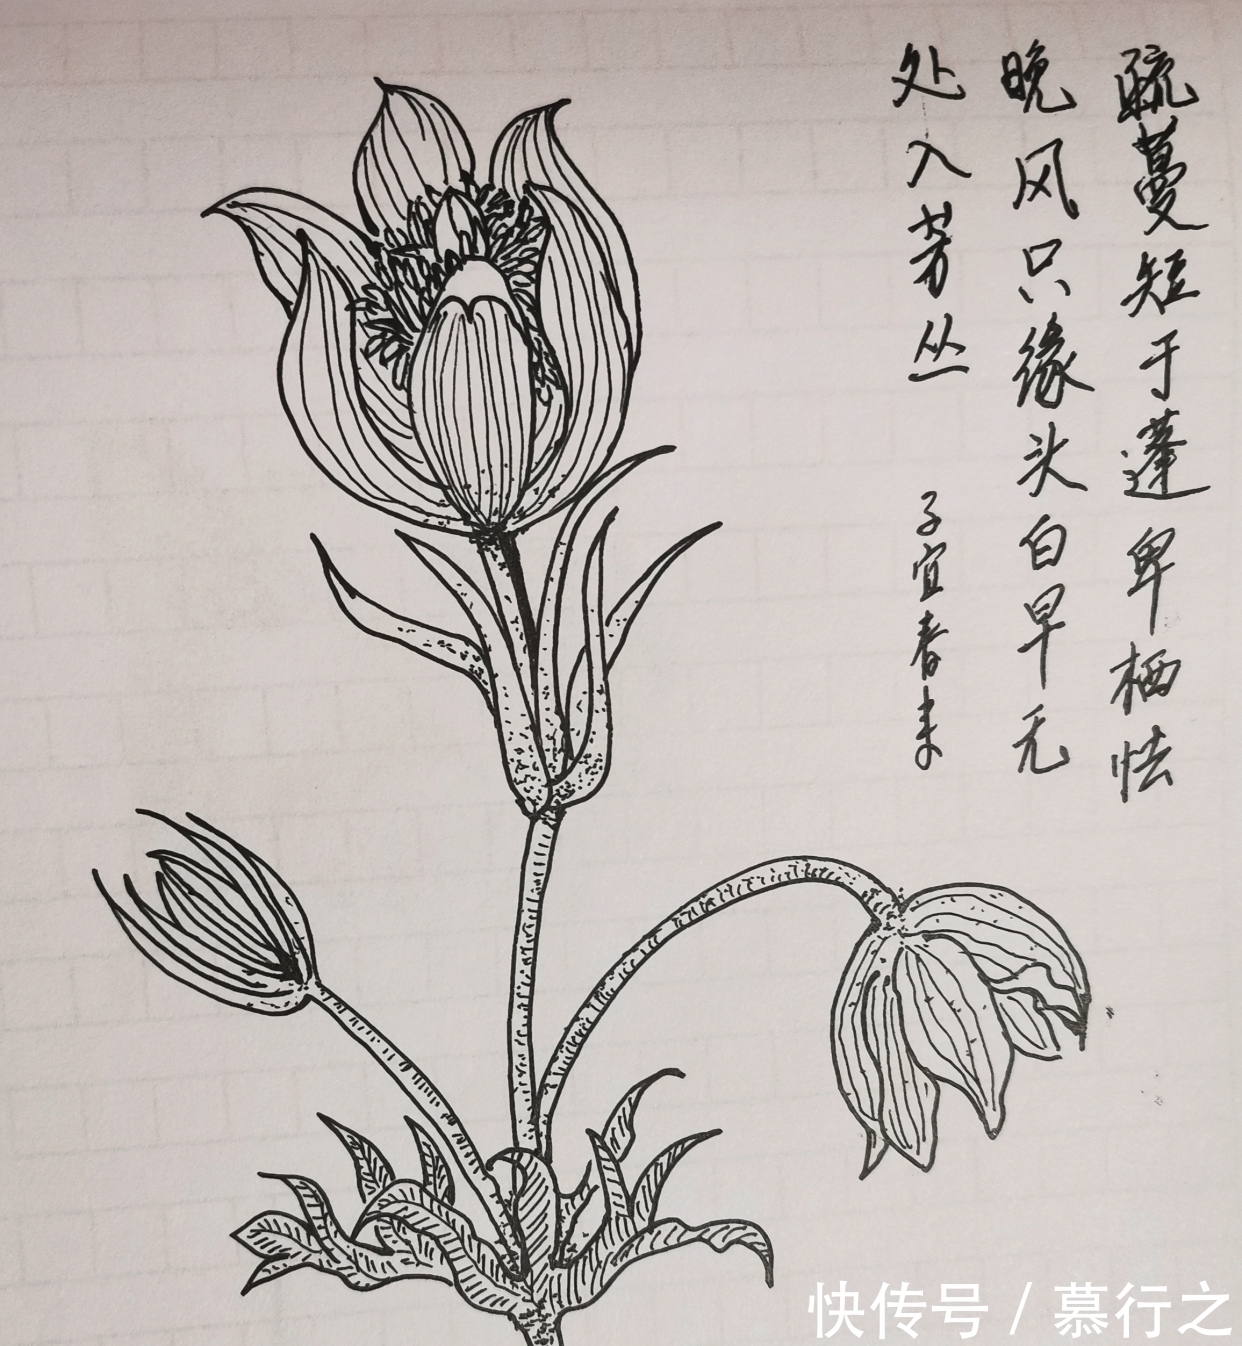 疏蔓短于蓬卑栖怯
晚风只缘头白早无
处入芳丛
子宜春来
快传号 / 慕行之